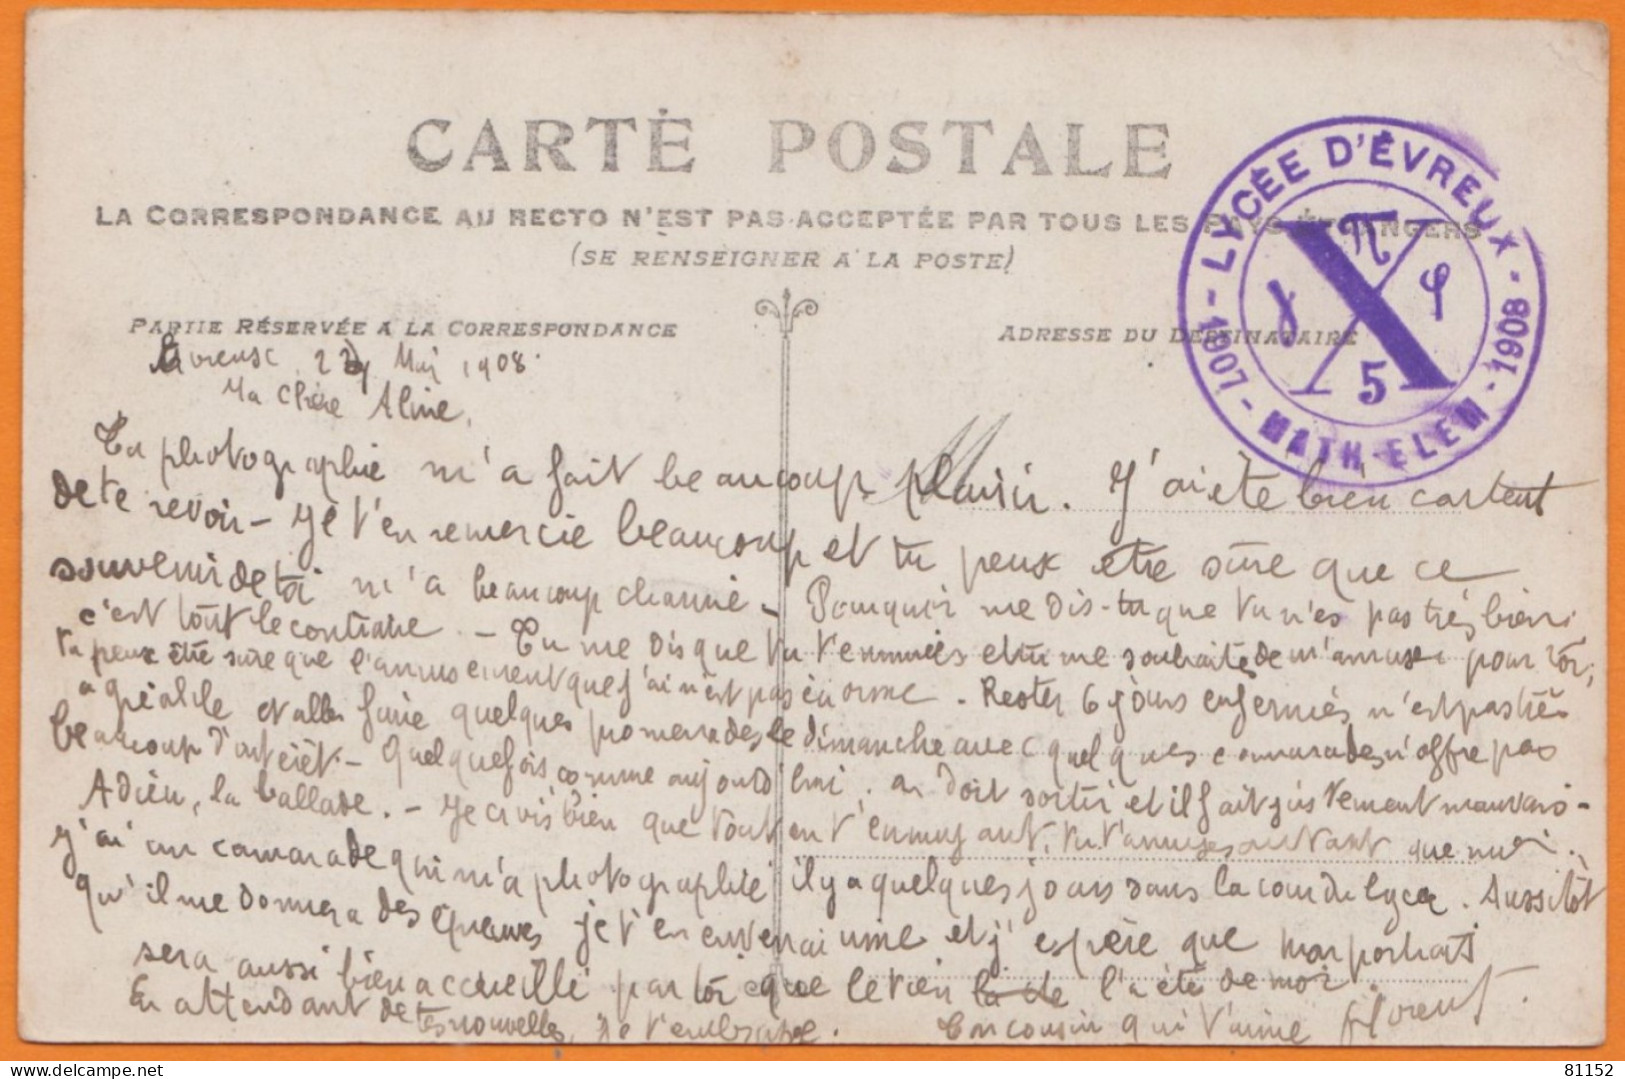 CARTE POSTALE
LA CORRESPONDANCE AU RECTO N'EST PAS ACCEPTÉE PAR TOUS LES PAYS ÉTRANGERS
(SE RENSEIGNER A LA POSTE)
PARTIE RÉSERVÉE A LA CORRESPONDANCE
ADRESSE DU DESTINATAIRE
LYCÉE D'ÉVREUX - 1908 - MATH-ELEM - 1907 -
X π φ γ 5
Evreux, Mai 1908.
Ma chère Aline,
Ta photographie m'a fait beaucoup plaisir. J'ai été bien content
de te revoir - Je t'en remercie beaucoup et tu peux être sûre que ce
souvenir de toi m'a beaucoup charmé - Pourquoi me dis-tu que tu n'es pas très bien,
c'est tout le contraire. - Tu me dis que tu t'ennuies et tu me souhaites de m'amuser pour toi,
tu peux être sûre que l'amusement que j'ai n'est pas énorme. Rester 6 jours enfermés n'est pas très
agréable et aller faire quelques promenades le dimanche avec quelques camarades n'offre pas
beaucoup d'intérêt - Quelquefois comme aujourd'hui, on doit sortir et il fait justement mauvais -
Adieu, la ballade. - Je crois bien que tout en t'ennuyant, tu t'amuses autant que moi.
J'ai un camarade qui m'a photographié il y a quelques jours dans la cour du lycée. Aussitôt
qu'il me donnera des épreuves je t'en enverrai une et j'espère que mon portrait
sera aussi bien accueilli par toi que le tien la de l'a été de moi.
En attendant de tes nouvelles, je t'embrasse. Ton cousin qui t'aime Florent.
delcampe.net
81152